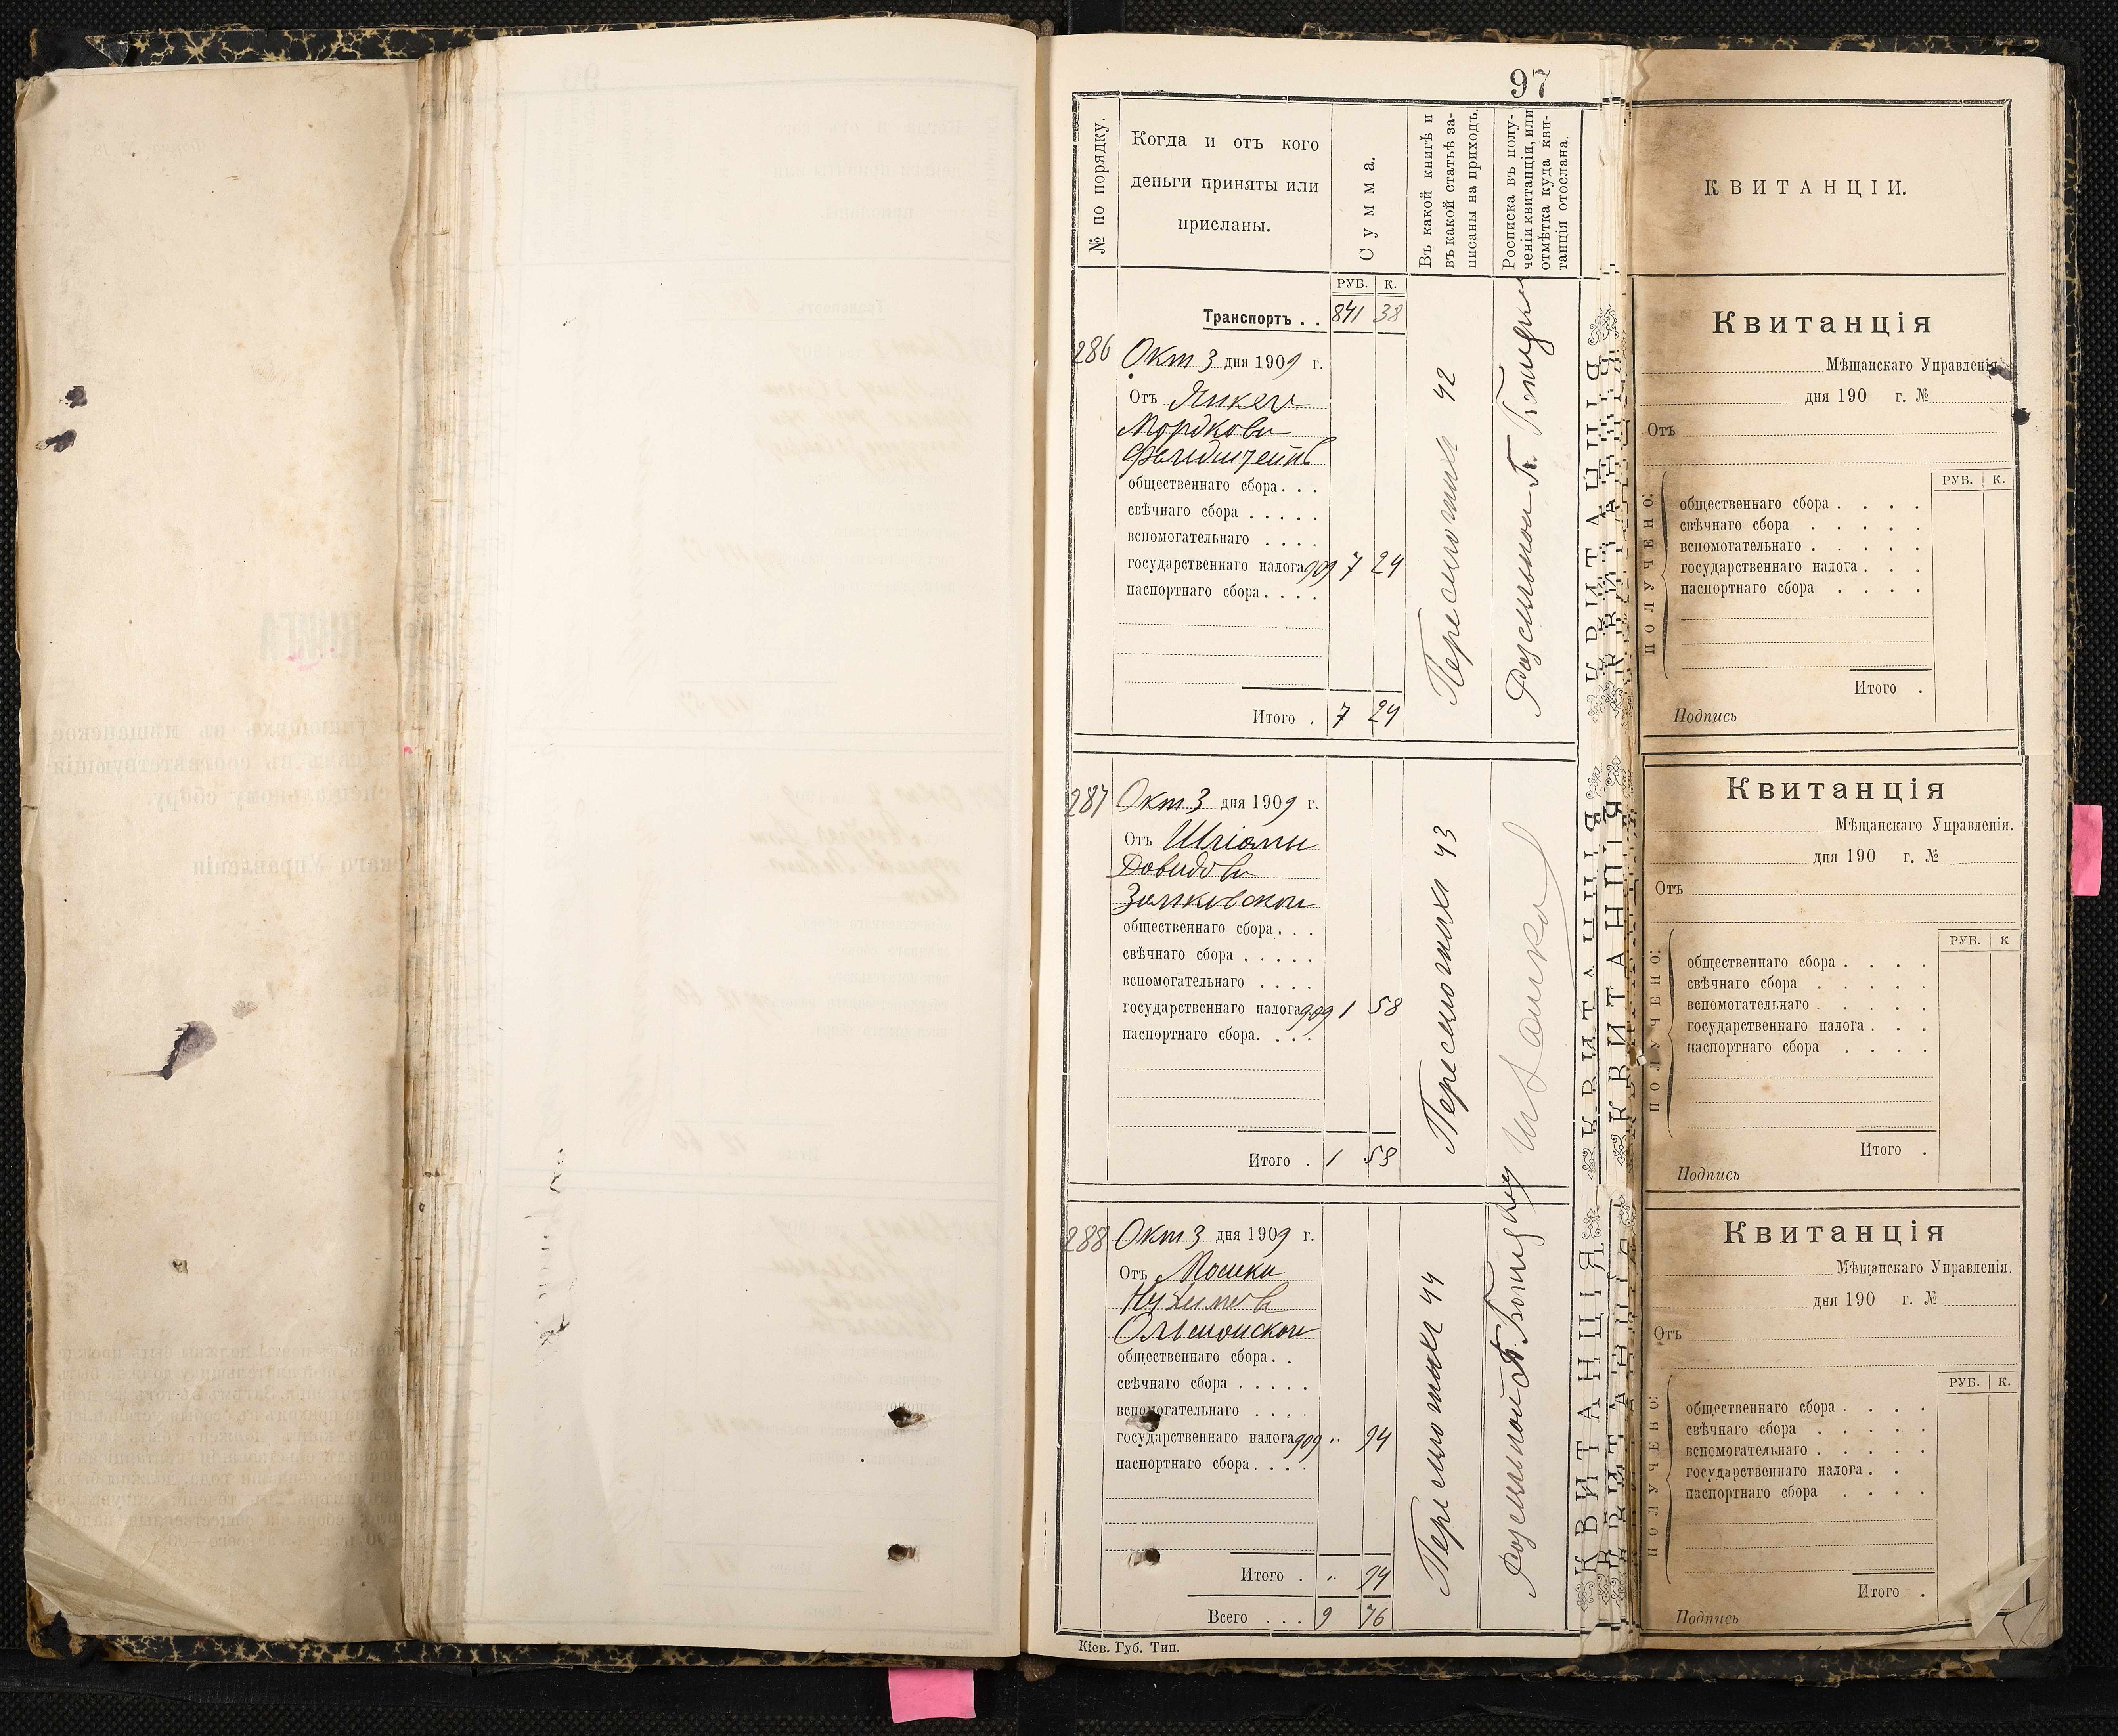 97
№ по порядку.
Когда и отъ кого
деньги приняты или
присланы.
Сумма.
Въ какой книгѣ и
въ какой статьѣ за-
писаны на приходъ.
Росписка въ полу-
ченіи квитанціи, или
отмѣтка куда кви-
танція отослана.
РУБ. К.
Транспортъ . . 841 38
286 Окт 3 дня 1909 г.
Отъ Янкеля
Мордкова
Фельдштейнъ
общественнаго сбора . . .
свѣчнаго сбора . . . . .
вспомогательнаго . . . .
государственнаго налога 909 7 24
паспортнаго сбора . . . .
Итого . 7 24
42
287 Окт 3 дня 1909 г.
Отъ Шліомы
Довидова
общественнаго сбора . . .
свѣчнаго сбора . . . . .
вспомогательнаго . . . .
государственнаго налога 909 1 58
паспортнаго сбора . . . .
Итого . 1 58
43
288 Окт 3 дня 1909 г.
Отъ Мошки
Нухимова
общественнаго сбора . .
свѣчнаго сбора . . . . .
вспомогательнаго . . . .
государственнаго налога 909 " 94
паспортнаго сбора . . . .
Итого . " 94
Всего . . . 9 76
44
Кіев. Губ. Тип.
КВИТАНЦІЯ
КВИТАНЦІЯ
КВИТАНЦІИ.
Квитанція
Мѣщанскаго Управленія.
дня 190 г. №
Отъ
РУБ. К.
ПОЛУЧЕНО:
общественнаго сбора . . . .
свѣчнаго сбора . . . . .
вспомогательнаго . . . . .
государственнаго налога . . .
паспортнаго сбора . . . .
Итого .
Подпись
Квитанція
Мѣщанскаго Управленія.
дня 190 г. №
Отъ
РУБ. К
ПОЛУЧЕНО:
общественнаго сбора . . . .
свѣчнаго сбора . . . . .
вспомогательнаго . . . . .
государственнаго налога . . .
паспортнаго сбора . . . .
Итого .
Подпись
Квитанція
Мѣщанскаго Управленія.
дня 190 г. №
Отъ
РУБ. К.
ПОЛУЧЕНО:
общественнаго сбора . . . .
свѣчнаго сбора . . . . .
вспомогательнаго . . . . .
государственнаго налога . .
паспортнаго сбора . . . .
Итого .
Подпись